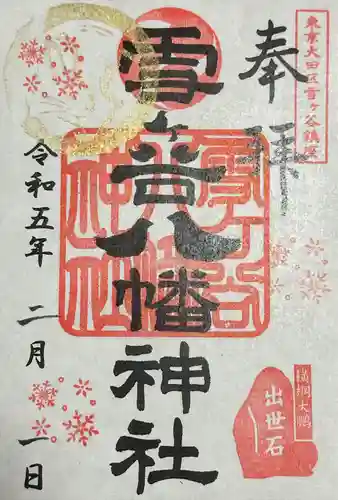 東京大田区雪ヶ谷鎮座
奉拝
雪ヶ谷八幡神社
雪ヶ谷八幡神社
令和五年 二月 一日
横綱大鵬
出世石